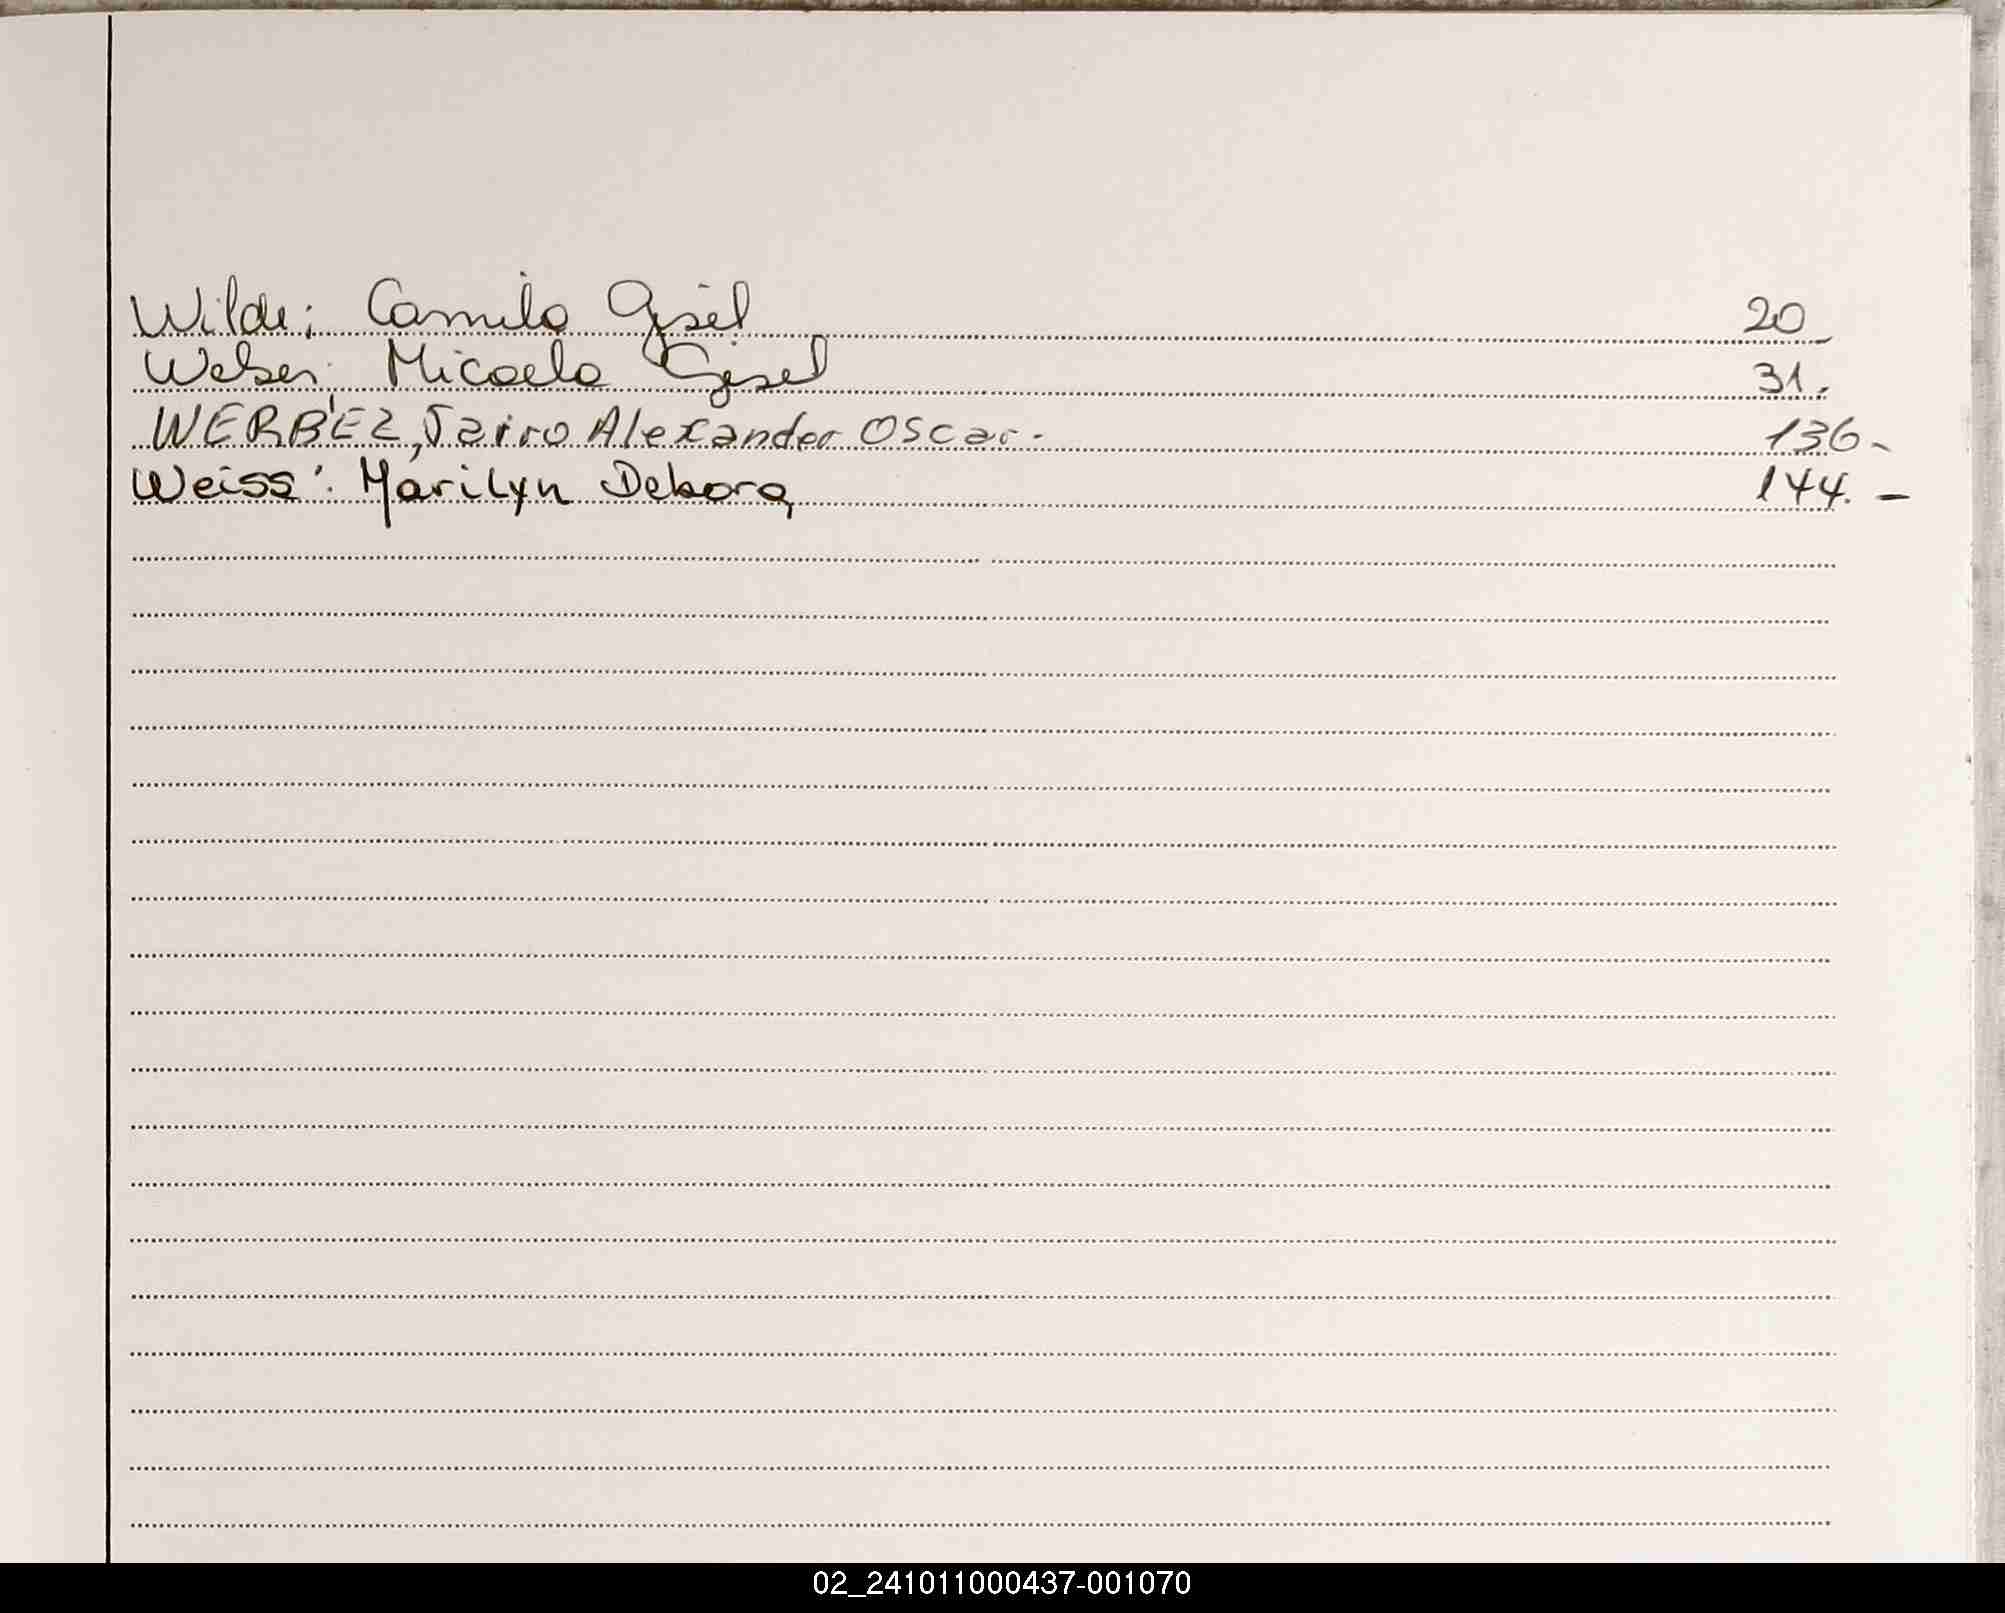 Wilde; Camila Gisel 20
Weber; Micaela Gisel 31.
WERBEZ, Jairo Alexander Oscar.- 136-
Weiss: Marilyn Debora 144.-
02_241011000437-001070